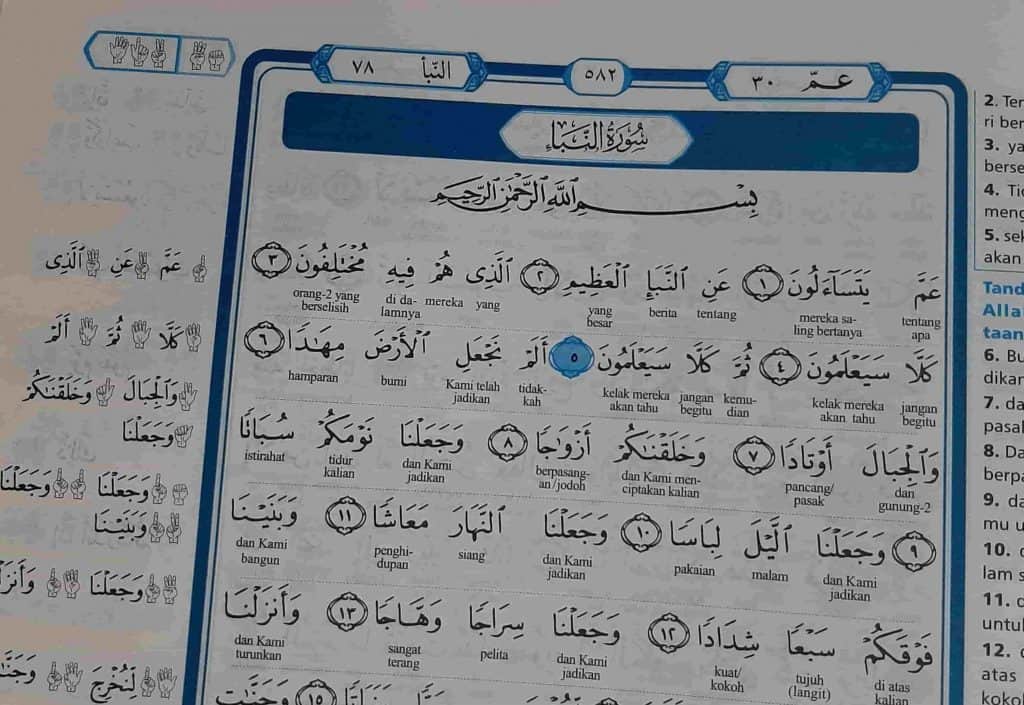 عمّ ٣٠
٥٨٢
النّبأ ٧٨
سُورَةُ النَّبَاءِ
بِسْمِ اللّٰهِ الرَّحْمٰنِ الرَّحِيْمِ
عَمَّ يَتَسَاۤءَلُوْنَ ١ عَنِ النَّبَاِ الْعَظِيْمِ ٢ الَّذِيْ هُمْ فِيْهِ مُخْتَلِفُوْنَ ٣
tentang apa mereka sa-ling bertanya tentang berita yang besar yang mereka di da-lamnya orang-2 yang berselisih
كَلَّا سَيَعْلَمُوْنَ ٤ ثُمَّ كَلَّا سَيَعْلَمُوْنَ ٥ اَلَمْ نَجْعَلِ الْاَرْضَ مِهٰدًا ٦
jangan begitu kelak mereka akan tahu kemu-dian jangan begitu kelak mereka akan tahu tidak-kah Kami telah jadikan bumi hamparan
وَّالْجِبَالَ اَوْتَادًا ٧ وَّخَلَقْنٰكُمْ اَزْوَاجًا ٨ وَّجَعَلْنَا نَوْمَكُمْ سُبَاتًا
dan gunung-2 pancang/pasak dan Kami men-ciptakan kalian berpasang-an/jodoh dan Kami jadikan tidur kalian istirahat
٩ وَّجَعَلْنَا الَّيْلَ لِبَاسًا ١٠ وَّجَعَلْنَا النَّهَارَ مَعَاشًا ١١ وَبَنَيْنَا
dan Kami jadikan malam pakaian dan Kami jadikan siang penghi-dupan dan Kami bangun
فَوْقَكُمْ سَبْعًا شِدَادًا ١٢ وَّجَعَلْنَا سِرَاجًا وَّهَّاجًا ١٣ وَّاَنْزَلْنَا
di atas kalian tujuh (langit) kuat/kokoh dan Kami jadikan pelita sangat terang dan Kami turunkan
١٥ وَجَنّٰتٍ
عَمَّ عَنِ الَّذِيْ
كَلَّا ثُمَّ اَلَمْ
وَالْجِبَالَ وَخَلَقْنٰكُمْ
وَجَعَلْنَا
وَجَعَلْنَا وَجَعَلْنَا
وَبَنَيْنَا
وَجَعَلْنَا وَاَنْزَلْنَا
لِنُخْرِجَ
2. Ter
ri ber
3. ya
berse
4. Tid
meng
5. sek
akan
Tand
Alla
taan
6. Bu
dikan
7. da
pasak
8. Da
berpa
9. da
mu u
10. d
lam s
11. d
untuk
12. d
atas
kokoh